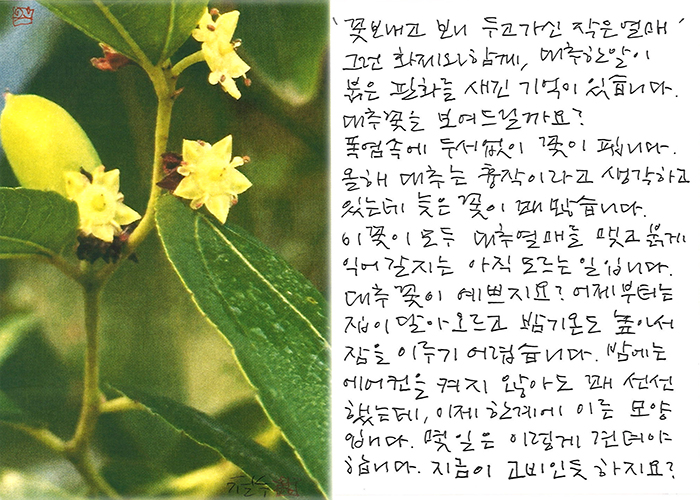 '꽃보내고 보니 두고가신 작은열매'
그런 화제와함께, 대추한알이
붉은 판화를 새긴 기억이 있습니다.
대추꽃을 보여드릴까요?
폭염속에 두서없이 꽃이 핍니다.
올해 대추는 흉작이라고 생각하고
있는데 늦은 꽃이 꽤 많습니다.
이 꽃이 모두 대추열매를 맺고 붉게
익어갈지는 아직 모르는일입니다.
대추꽃이 예쁘지요? 어제부터는
집이 달아오르고 밤기온도 높아서
잠을 이루기 어렵습니다. 밤에는
에어컨을 켜지 않아도 꽤 선선
했는데, 이제 한계에 이른 모양
입니다. 몇일은 이렇게 견뎌야
합니다. 지금이 고비인듯 하지요?